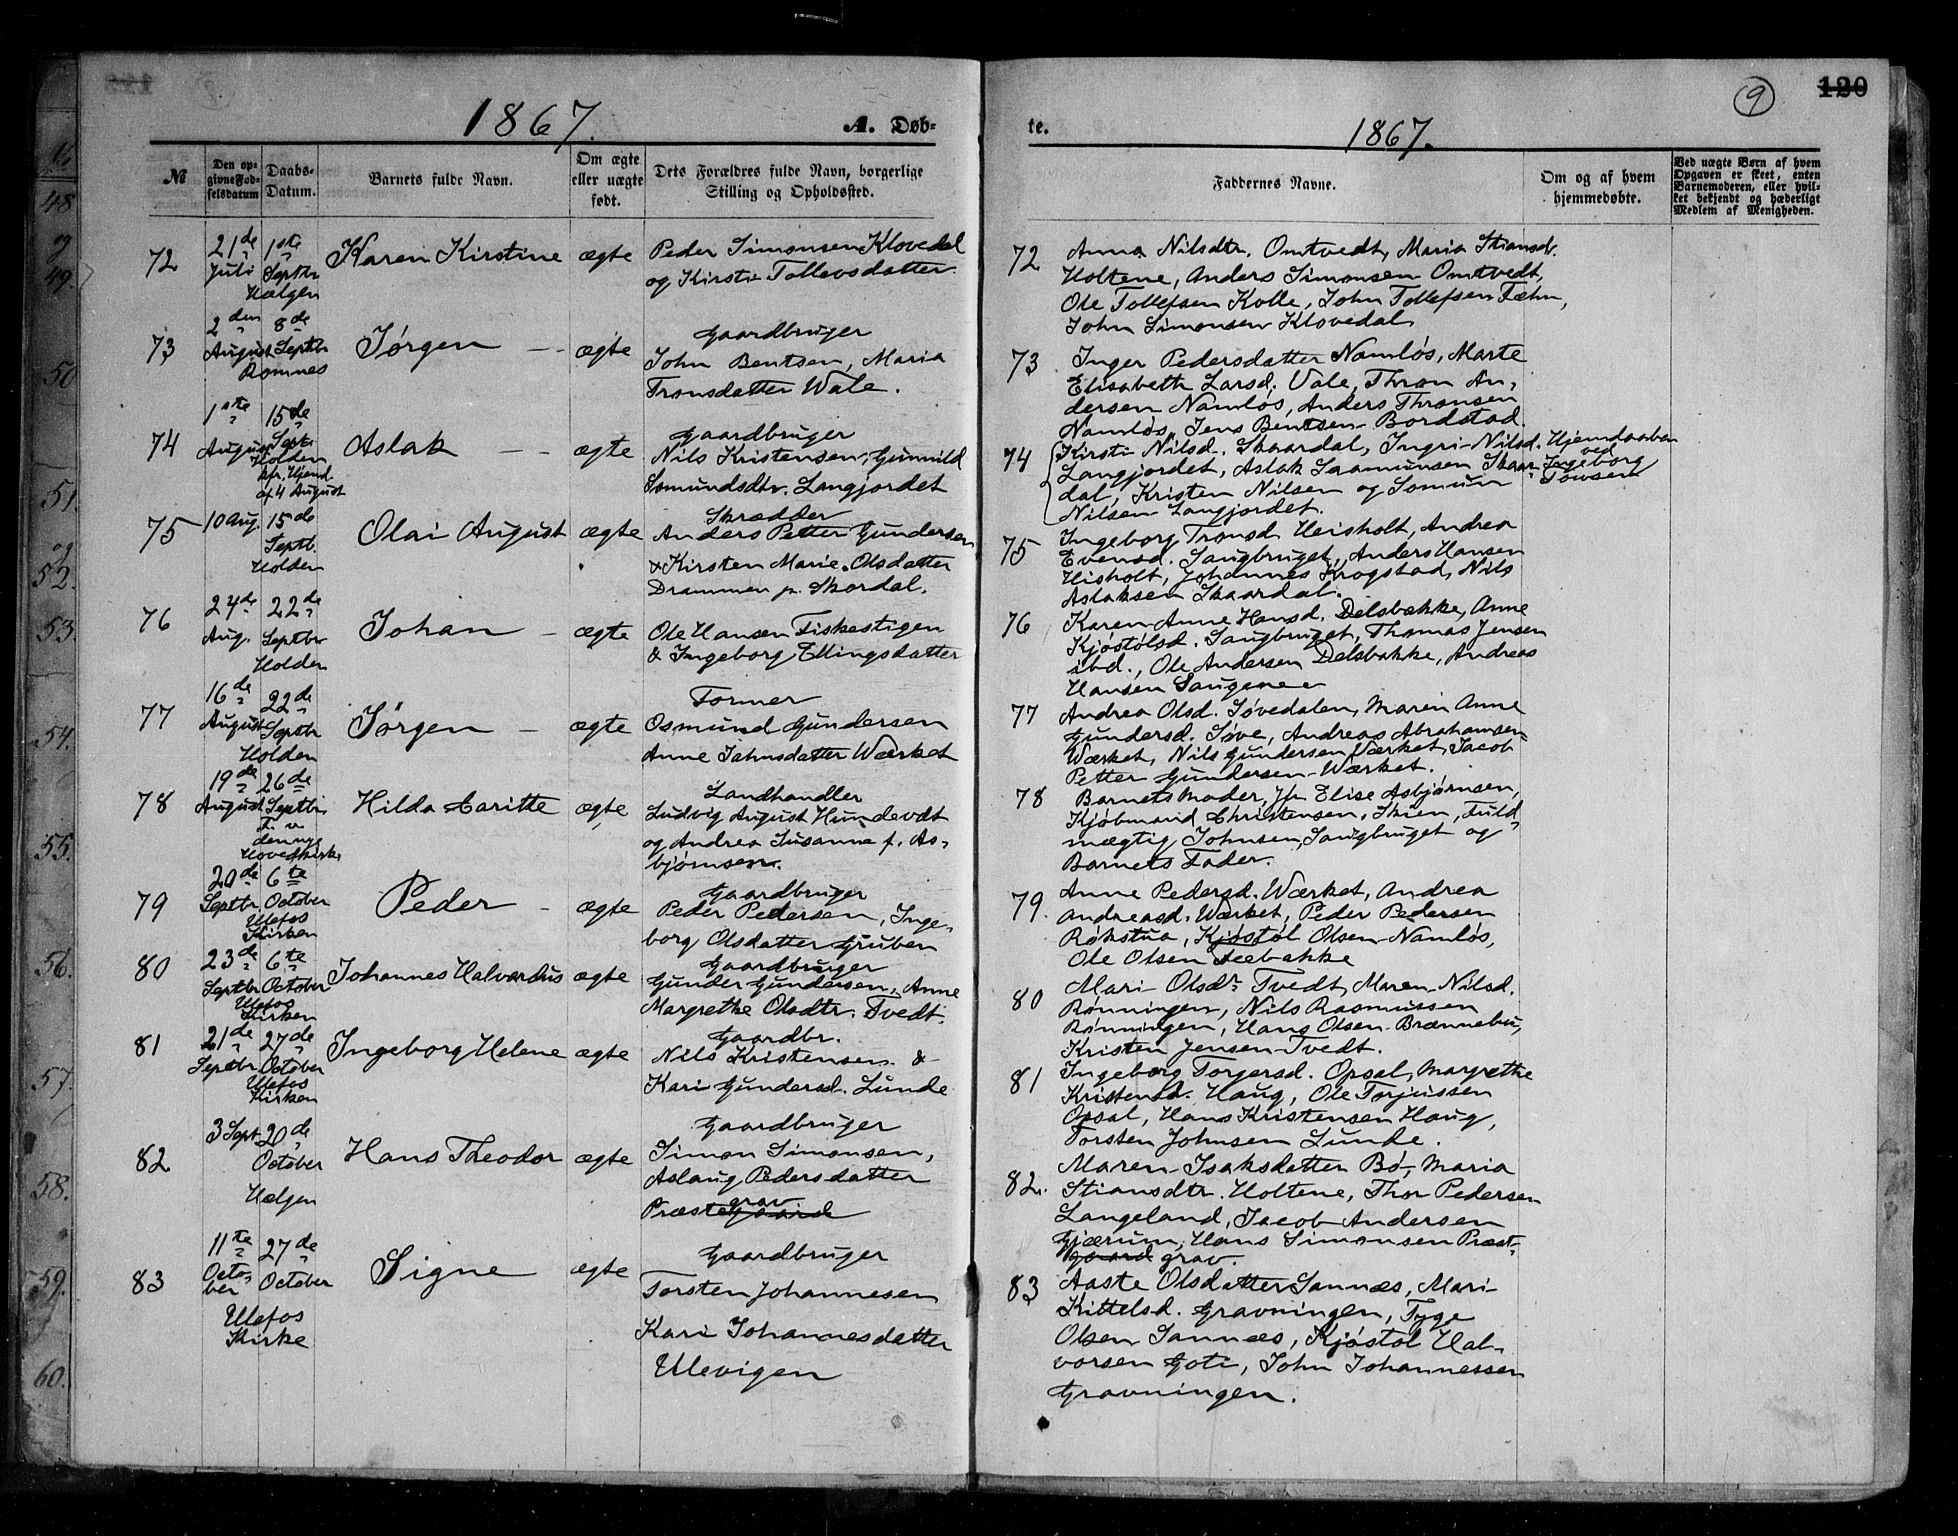 1867.
A. Døb-
№
Den op-
givne Fød-
selsdatum
Daabs-
Datum.
Barnets fulde Navn.
Om ægte
eller uægte
født.
Dets Forældres fulde Navn, borgerlige
Stilling og Opholdssted.
72
21de
Juli
1ste
Septbr
Hælgen
Karen Kirstine
ægte
Peder Simonsen Klovedal
og Kirsti Tollevsdatter
73
2den
August
8de
Septbr
Romnes
Jørgen
ægte
Gaardbruger
John Bentsen, Maria
Tronsdatter Wale.
74
1ste
August
15de
Septr
Holden
Hjemd.
af 4 August
Aslak
ægte
Gaardbruger
Nils Kristensen, Gunnild
Somundsdtr. Langjordet
75
10 Aug.
15de
Septb.
Holden
Olai August
ægte
Skrædder
Anders Petter Gundersen
& Kirsten Marie Olsdatter
Drammen p. Skordal.
76
24de
Aug.
22de
Septbr
Holden
Johan
ægte
Ole Hansen Fiskestigen
& Ingeborg Ellingsdatter
77
16de
August
22de
Septbr
Holden
Jørgen
ægte
Former
Osmund Gundersen
Anne Jahnsdatter Wærket
78
19de
August
26de
Septbr
F. v.
den nye
Hovedkirke
Hilda Caritte
ægte
Landhandler
Ludvig August Hundevdt
og Andrea Susanne f. As-
bjørnsen.
79
20de
Septbr
6te
October
Ulefos
Kirken
Peder
ægte
Gaardbruger
Peder Pedersen, Inge-
borg Olsdatter Gruben
80
23de
Septbr
6te
October
Ulefos
Kirken
Johannes Halvardus
ægte
Gaardbruger
Gunder Gundersen, Anne
Margrethe Olsdtr. Tvedt.
81
21de
Septbr
27de
October
Ulefos
Kirken
Ingeborg Helene
ægte
Gaardbr.
Nils Kristensen &
Kari Gundersd. Lunde
82
3 Sept.
20de
October
Hælgen
Hans Theodor
ægte
Gaardbruger
Simon Simonsen,
Aslaug Pedersdatter
grav
Præstegaard
83
11te
Octo-
ber
27de
October
Ulefos
Kirke
Signe
ægte
Gaardbruger
Torsten Johannesen
Kari Johannesdatter
Ulevigen
48
og
49.
50
51.
og
52.
53.
54.
55.
56.
57.
58.
59.
60.
9
120
te.
1867.
Faddernes Navne.
Om og af hvem
hjemmedøbte.
Ved uægte Børn af hvem
Opgaven er skeet, enten
Barnemoderen, eller hvil-
ket bekjendt og hæderligt
Medlem af Menigheden.
72
Anna Nilsdtr. Omtvedt, Maria Stiansdr.
Holtene, Anders Simonsen Omtvedt,
Ole Tollefsen Kolle, John Tollefsen Fæhn,
John Simonsen Klovedal
73
Inger Pedersdatter Namløs, Marte
Elisabeth Larsd. Vale, Thron An-
dersen Namløs, Anders Thronsen
Namløs, Jens Bentsen Bordstad.
74
Kirsti Nilsd. Skaardal, Ingri Nilsd.
Langjordet, Aslak Saamunsen Skaar-
dal, Kristen Nilsen og Somun
Nilsen Langjordet.
Hjemdøbn
ved
Ingeborg
Towsen
75
Ingeborg Tronsd. Heisholt, Andrea
Evensd. Saugbruget, Anders Hansen
Hisholt, Johannes Krogstad, Nils
Aslaksen Skaardal.
76
Karen Anne Hansd. Delsbække, Anne
Kjøstølsd. Saugbruget, Thomas Jensen
ibd., Ole Andersen Delsbakke, Andreas
Hansen Saugene
77
Andrea Olsd. Søvedalen, Maren Anne
Gundersd. Søve, Andreas Abrahamsen
Wærket, Nils Gundersen Værket, Jacob
Petter Gundersen Wærket.
78
Barnets Moder, Jfr Elise Asbjørnsen,
Kjøbmand Christensen, Skien, Fuld-
mægtig Johnsen, Saugbruget og
Barnets Fader.
79.
Anne Pedersd. Wærket, Andrea
Andreasd. Wærket, Peder Pedersen
Røkstua, Kjøstøl Olsen Namløs,
Ole Olsen Feebakke
80
Mari Olsdr Tvedt, Maren Nilsd.
Rønningen, Nils Rasmussen
Rønningen, Hans Olsen Brænnebu,
Kristen Jensen Tvedt.
81
Ingeborg Torgersd. Opsal, Margrethe
Kristensd. Haug, Ole Torjussen
Opsal, Hans Kristensen Haug,
Torsten Johnsen Lunde.
82.
Maren Isaksdatter Bø, Maria
Stiansdtr. Holtene, Thor Pedersen
Langeland, Jacob Andersen
Gjærum, Hans Simonsen Præst-
gaard grav.
83
Aaste Olsdatter Sannæs, Mari
Kittelsd. Gravningen, Tyge
Olsen Sannæs, Kjøstøl Hal-
vorsen Goti, John Johannessen
Gravningen.